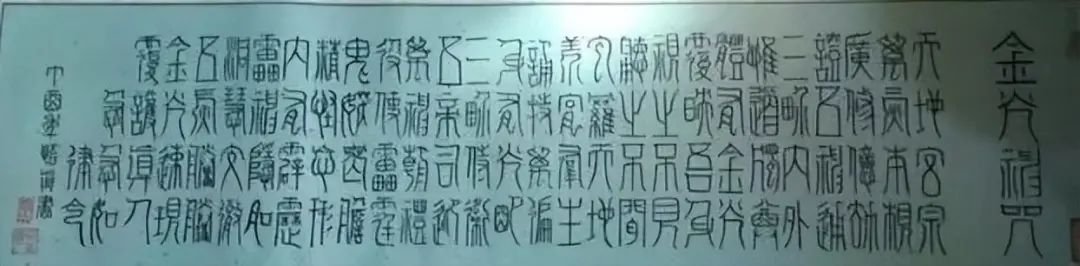 金光神咒
天地玄宗
萬炁本根
廣修億劫
證吾神通
三界內外
惟道獨尊
體有金光
覆映吾身
視之不見
聽之不聞
包羅天地
養育群生
誦持萬遍
身有光明
三界侍衛
五帝司迎
萬神朝禮
役使雷霆
鬼妖喪膽
精怪忘形
內有霹靂
雷神隱名
洞慧交徹
五炁騰騰
金光速現
覆護真人
急急如
律令
丁酉年書